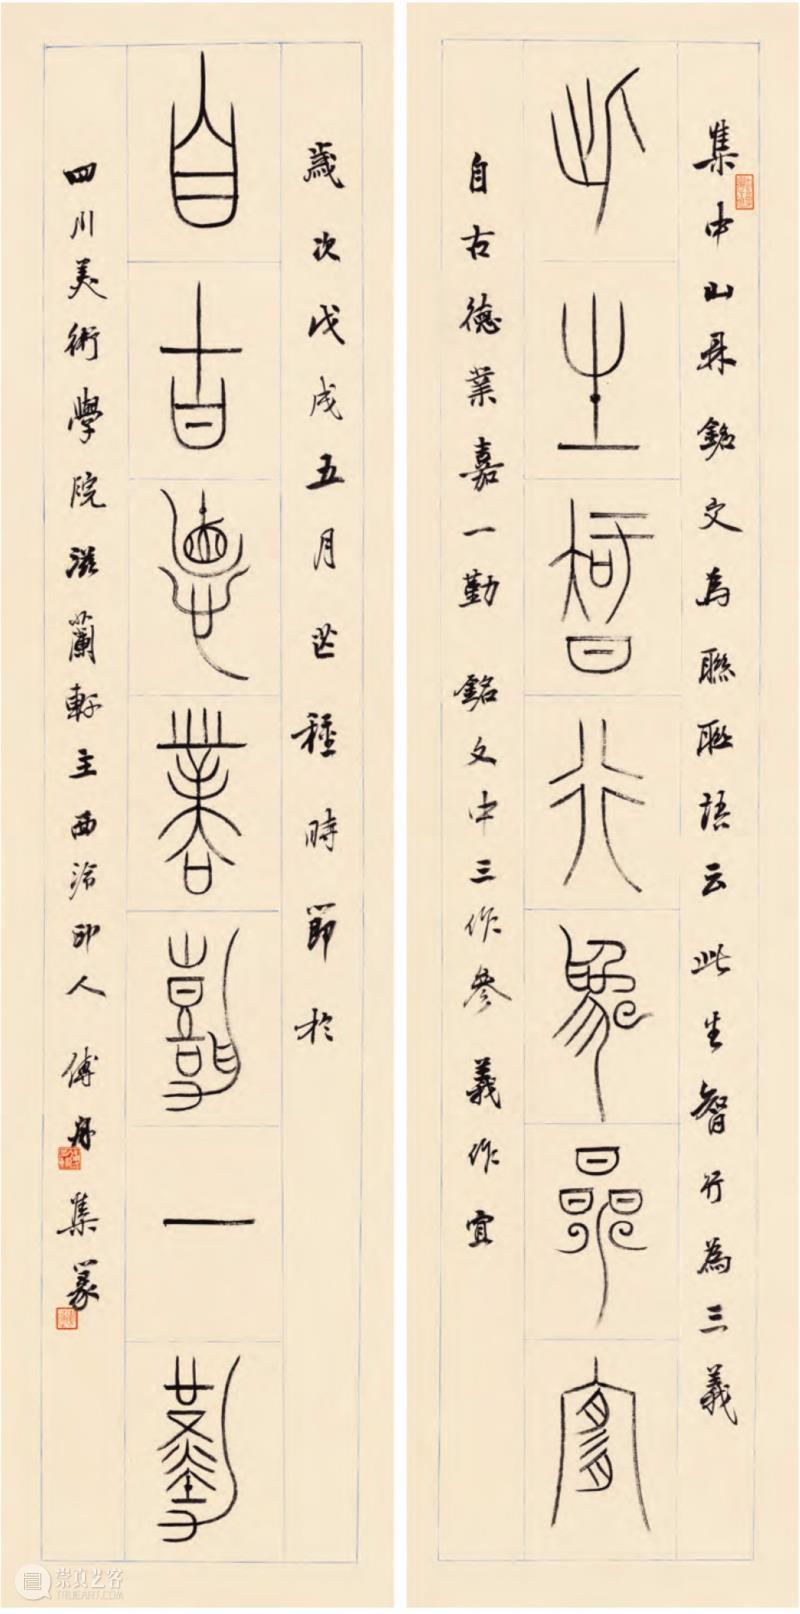 集中山鼎銘文為聯聯語云此生智行為三義
此生智行為參宜
自古德業嘉一勤 銘文中三作參 義作宜
歲次戊戌五月芒種時節於
自古德業嘉一勤
四川美術學院滋蘭軒主西泠印人傅舟集篆
崇真艺客
TRUEART.COM